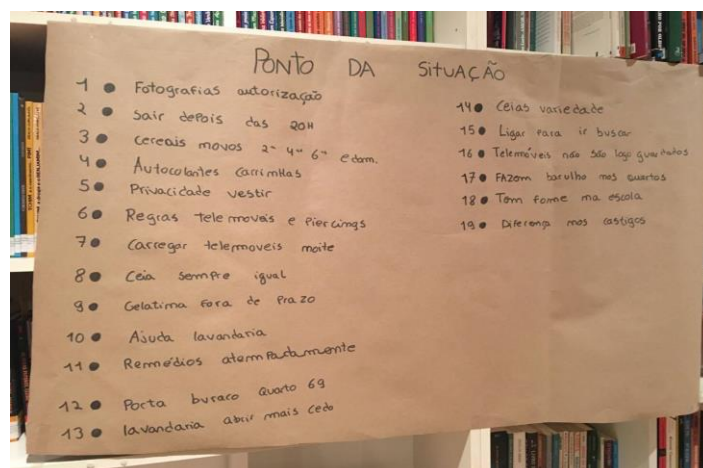 PONTO DA SITUAÇÃO
1 ● Fotografias autorização
2 ● Sair depois das 20H
3 ● Cereais novos 2ª 4ª 6ª e dom.
4 ● Autocolantes carrinhas
5 ● Privacidade vestir
6 ● Regras telemoveis e Piercings
7 ● Carregar telemoveis noite
8 ● Ceia sempre igual
9 ● Gelatina fora de prazo
10 ● Ajuda lavandaria
11 ● Remédios atempadamente
12 ● Porta buraco quarto 69
13 ● lavandaria abrir mais cedo
14 ● Ceias variedade
15 ● Ligar para ir buscar
16 ● Telemóveis não são logo guardados
17 ● FAzem barulho nos quartos
18 ● Tem fome na escola
19 ● Diferença nos castigos